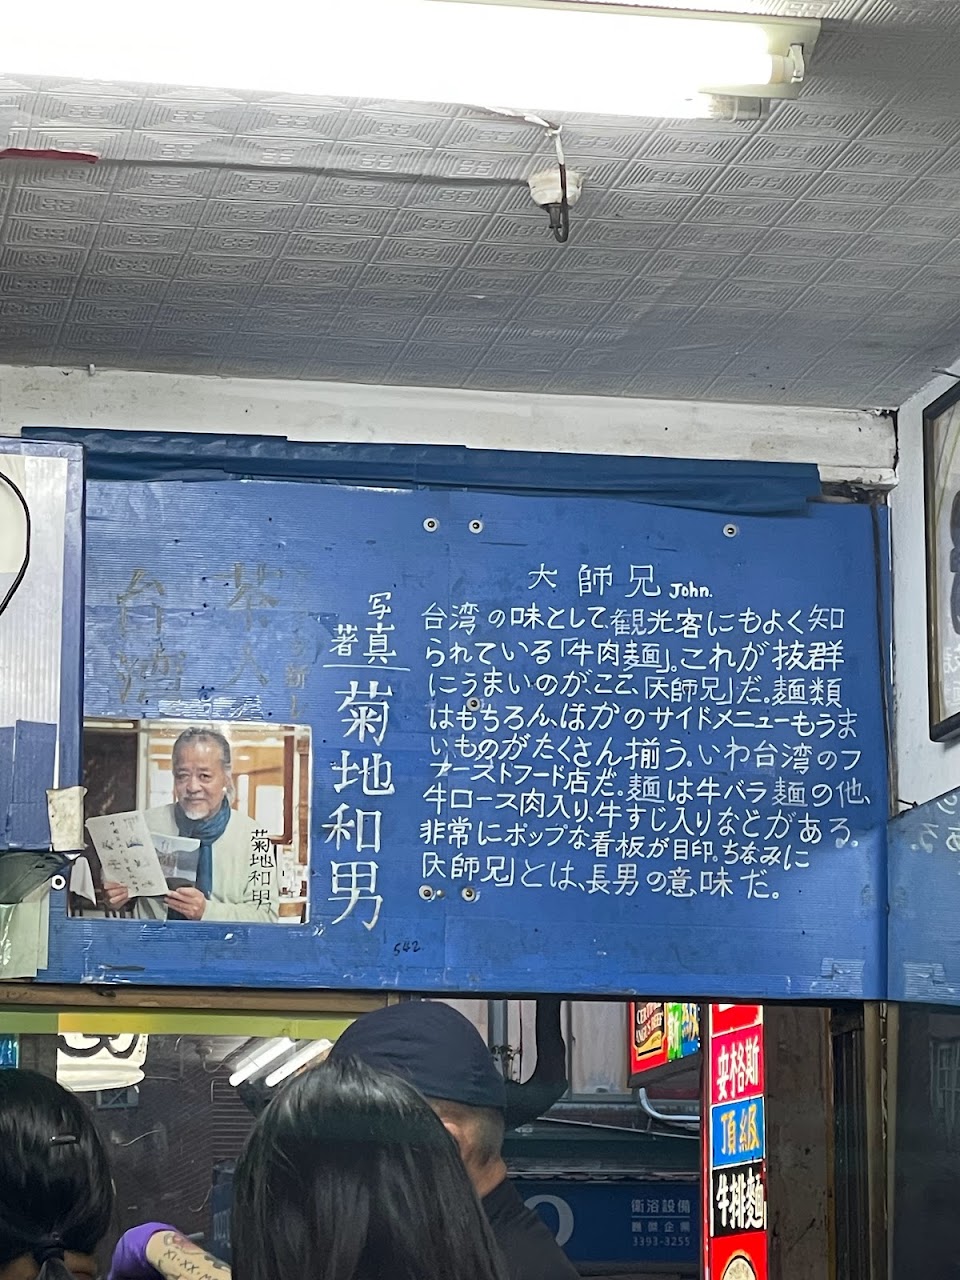 大師兄 John.
台湾の味として、観光客にもよく知
られている「牛肉麺」。これが抜群
にうまいのが、ここ、「大師兄」だ。麺類
はもちろん、ほかのサイドメニューもうま
いものがたくさん揃う。いわ台湾のフ
ァーストフード店だ。麺は牛バラ麺の他、
牛ロース肉入り、牛すじ入りなどがある。
非常にポップな看板が目印。ちなみに
「大師兄」とは、長男の意味だ。
写真
著
菊地和男
台湾
茶人
菊地和男
542
安格斯
頂級
牛排麵
衛浴設備
3393-3255